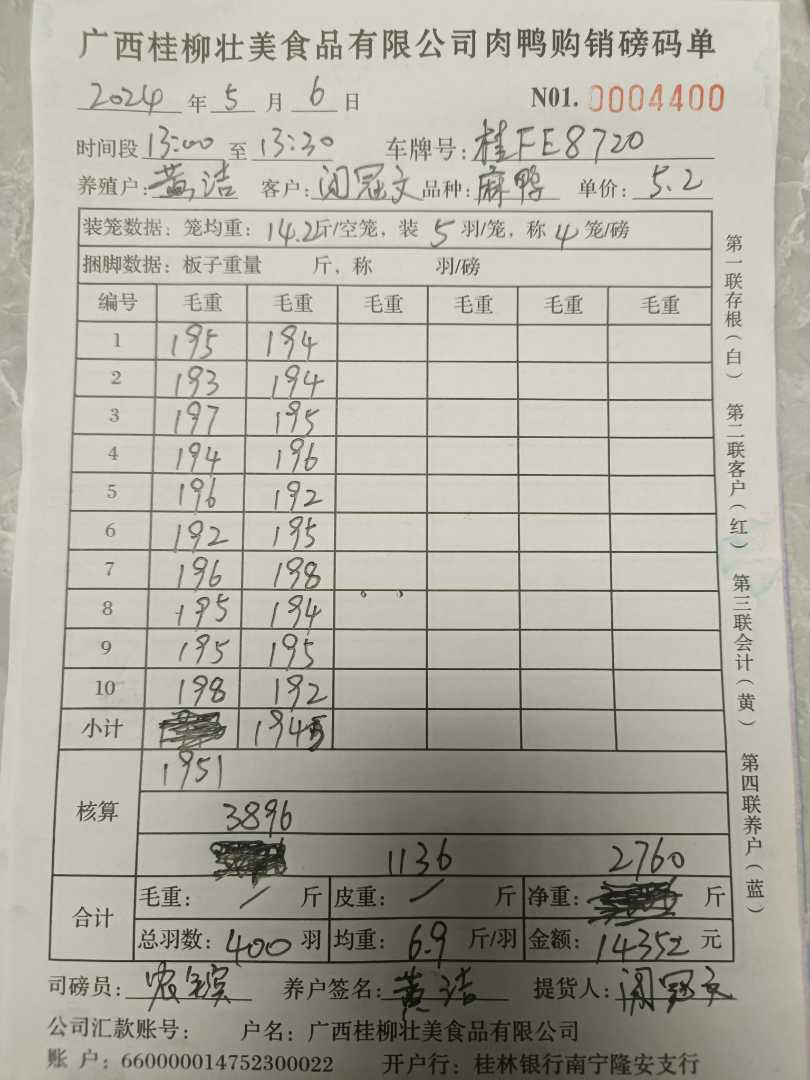 广西桂柳壮美食品有限公司肉鸭购销磅码单
2024年5月6日 N01. 0004400
时间段13:00至13:30 车牌号:桂FE8720
养殖户:黄洁 客户:闭冠文 品种:麻鸭 单价:5.2
装笼数据:笼均重:14.2斤/空笼,装5羽/笼,称4笼/磅
捆脚数据:板子重量 斤,称 羽/磅
编号 毛重 毛重 毛重 毛重 毛重 毛重
1 195 194
2 193 194
3 197 195
4 194 196
5 196 192
6 192 195
7 196 198
8 195 194
9 195 195
10 198 192
小计 1945
核算 1951
3896
1136 2760
合计 毛重:/斤 皮重:/斤 净重: 斤
总羽数:400羽 均重:6.9斤/羽 金额:14352元
司磅员: 养户签名:黄洁 提货人:闭冠文
公司汇款账号: 户名:广西桂柳壮美食品有限公司
账 户:660000014752300022 开户行:桂林银行南宁隆安支行
第一联存根(白) 第二联客户(红) 第三联会计(黄) 第四联养户(蓝)